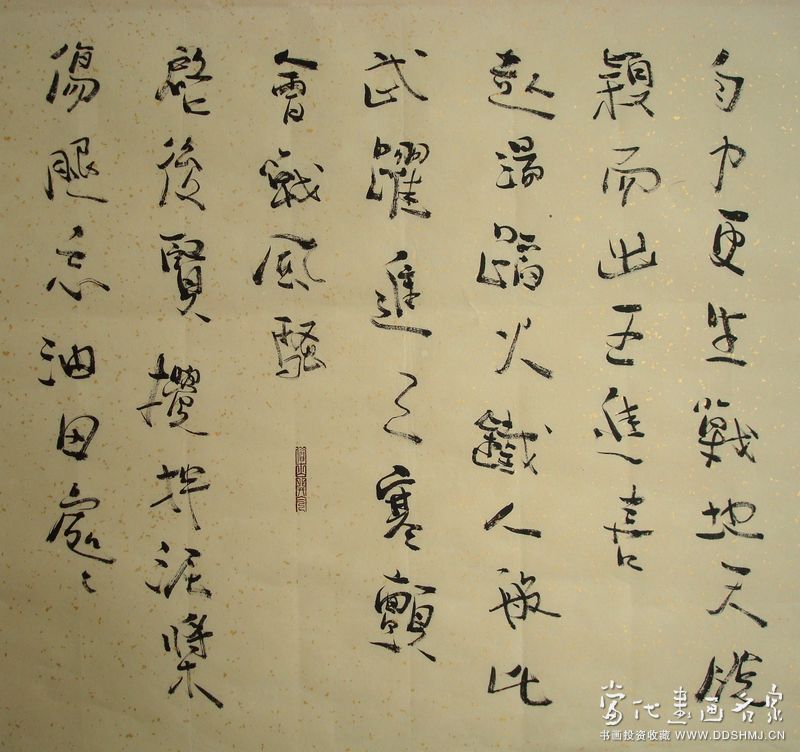 自力更生戰地天脱
穎而出王進喜
赴湯蹈火鐵人般比
武躍進三寒顫
會戰風騷
啓後賢攪拌泥漿
傷腿忘油田處々
當代書画名家
书画投资收藏 WWW.DDSHMJ.CN